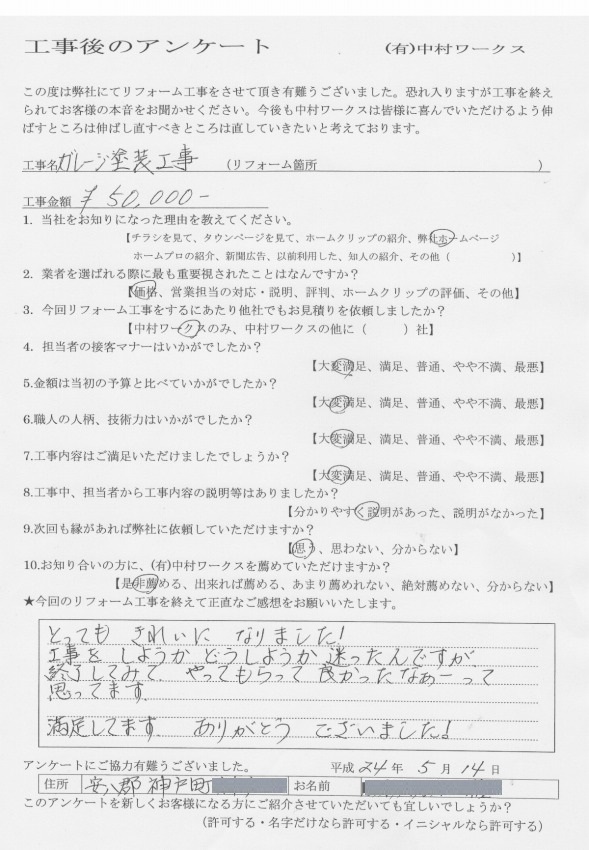 工事後のアンケート (有)中村ワークス
この度は弊社にてリフォーム工事をさせて頂き有難うございました。恐れ入りますが工事を終え
られてお客様の本音をお聞かせください。今後も中村ワークスは皆様に喜んでいただけるよう伸
ばすところは伸ばし直すべきところは直していきたいと考えております。
工事名 ガレージ塗装工事 (リフォーム箇所 )
工事金額 ¥50,000-
1. 当社をお知りになった理由を教えてください。
【チラシを見て、タウンページを見て、ホームクリップの紹介、弊社ホームページ
ホームプロの紹介、新聞広告、以前利用した、知人の紹介、その他( )】
2. 業者を選ばれる際に最も重要視されたことはなんですか?
【価格、営業担当の対応・説明、評判、ホームクリップの評価、その他】
3. 今回リフォーム工事をするにあたり他社でもお見積りを依頼しましたか?
【中村ワークスのみ、中村ワークスの他に( )社】
4. 担当者の接客マナーはいかがでしたか?
【大変満足、満足、普通、やや不満、最悪】
5.金額は当初の予算と比べていかがでしたか?
【大変満足、満足、普通、やや不満、最悪】
6.職人の人柄、技術力はいかがでしたか?
【大変満足、満足、普通、やや不満、最悪】
7.工事内容はご満足いただけましたでしょうか?
【大変満足、満足、普通、やや不満、最悪】
8.工事中、担当者から工事内容の説明等はありましたか?
【分かりやすく説明があった、説明がなかった】
9.次回も縁があれば弊社に依頼していただけますか?
【思う、思わない、分からない】
10.お知り合いの方に、(有)中村ワークスを薦めていただけますか?
【是非薦める、出来れば薦める、あまり薦めれない、絶対薦めない、分からない】
★今回のリフォーム工事を終えて正直なご感想をお願いいたします。
とっても きれいに なりました!
工事を しようか どうしようか 迷ったんですが、
終了してみて、やってもらって 良かったなぁーって
思ってます。
満足してます。 ありがとう ございました!
アンケートにご協力有難うございました。 平成 24 年 5 月 14 日
住所 安八郡 神戸町 お名前
このアンケートを新しくお客様になる方にご紹介させていただいても宜しいでしょうか?
(許可する・名字だけなら許可する・イニシャルなら許可する)